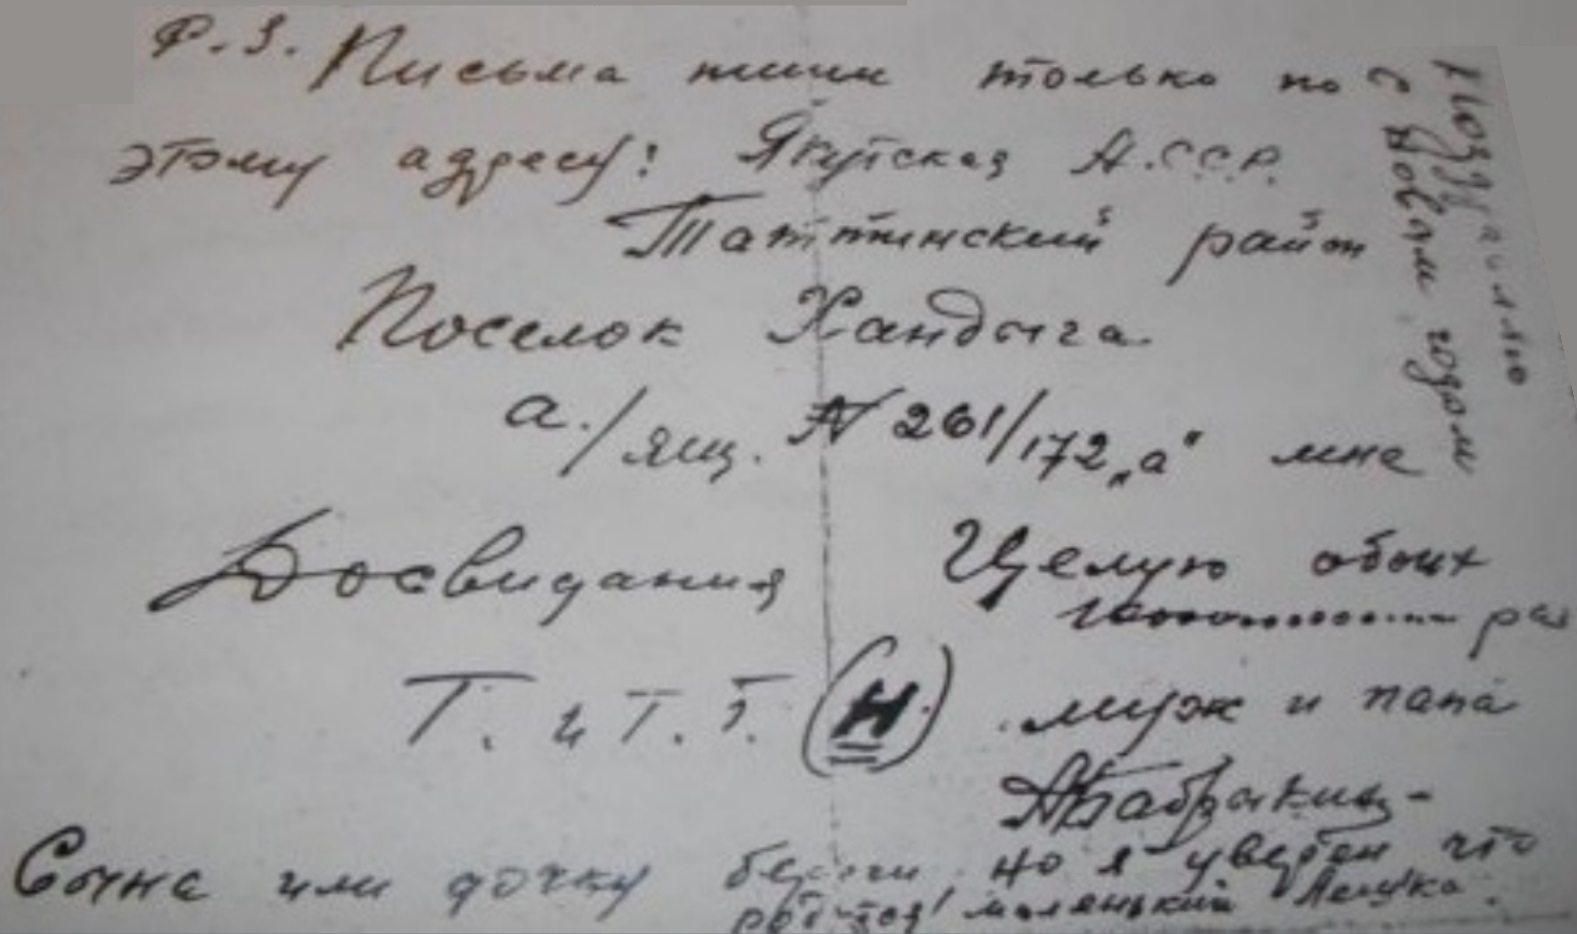 Р.З. Письма пиши только по
этому адресу: Якутская А.С.С.Р.
Таттинский район
Поселок Хандыга
а./ящ. N 261/172 „а“ мне
Досвидания Целую обоих
раз
Т. и Т.Т. (Н.) муж и папа
Сына или дочку береги. но я уверен что
родится маленький
Поздравляю
с Новым годом